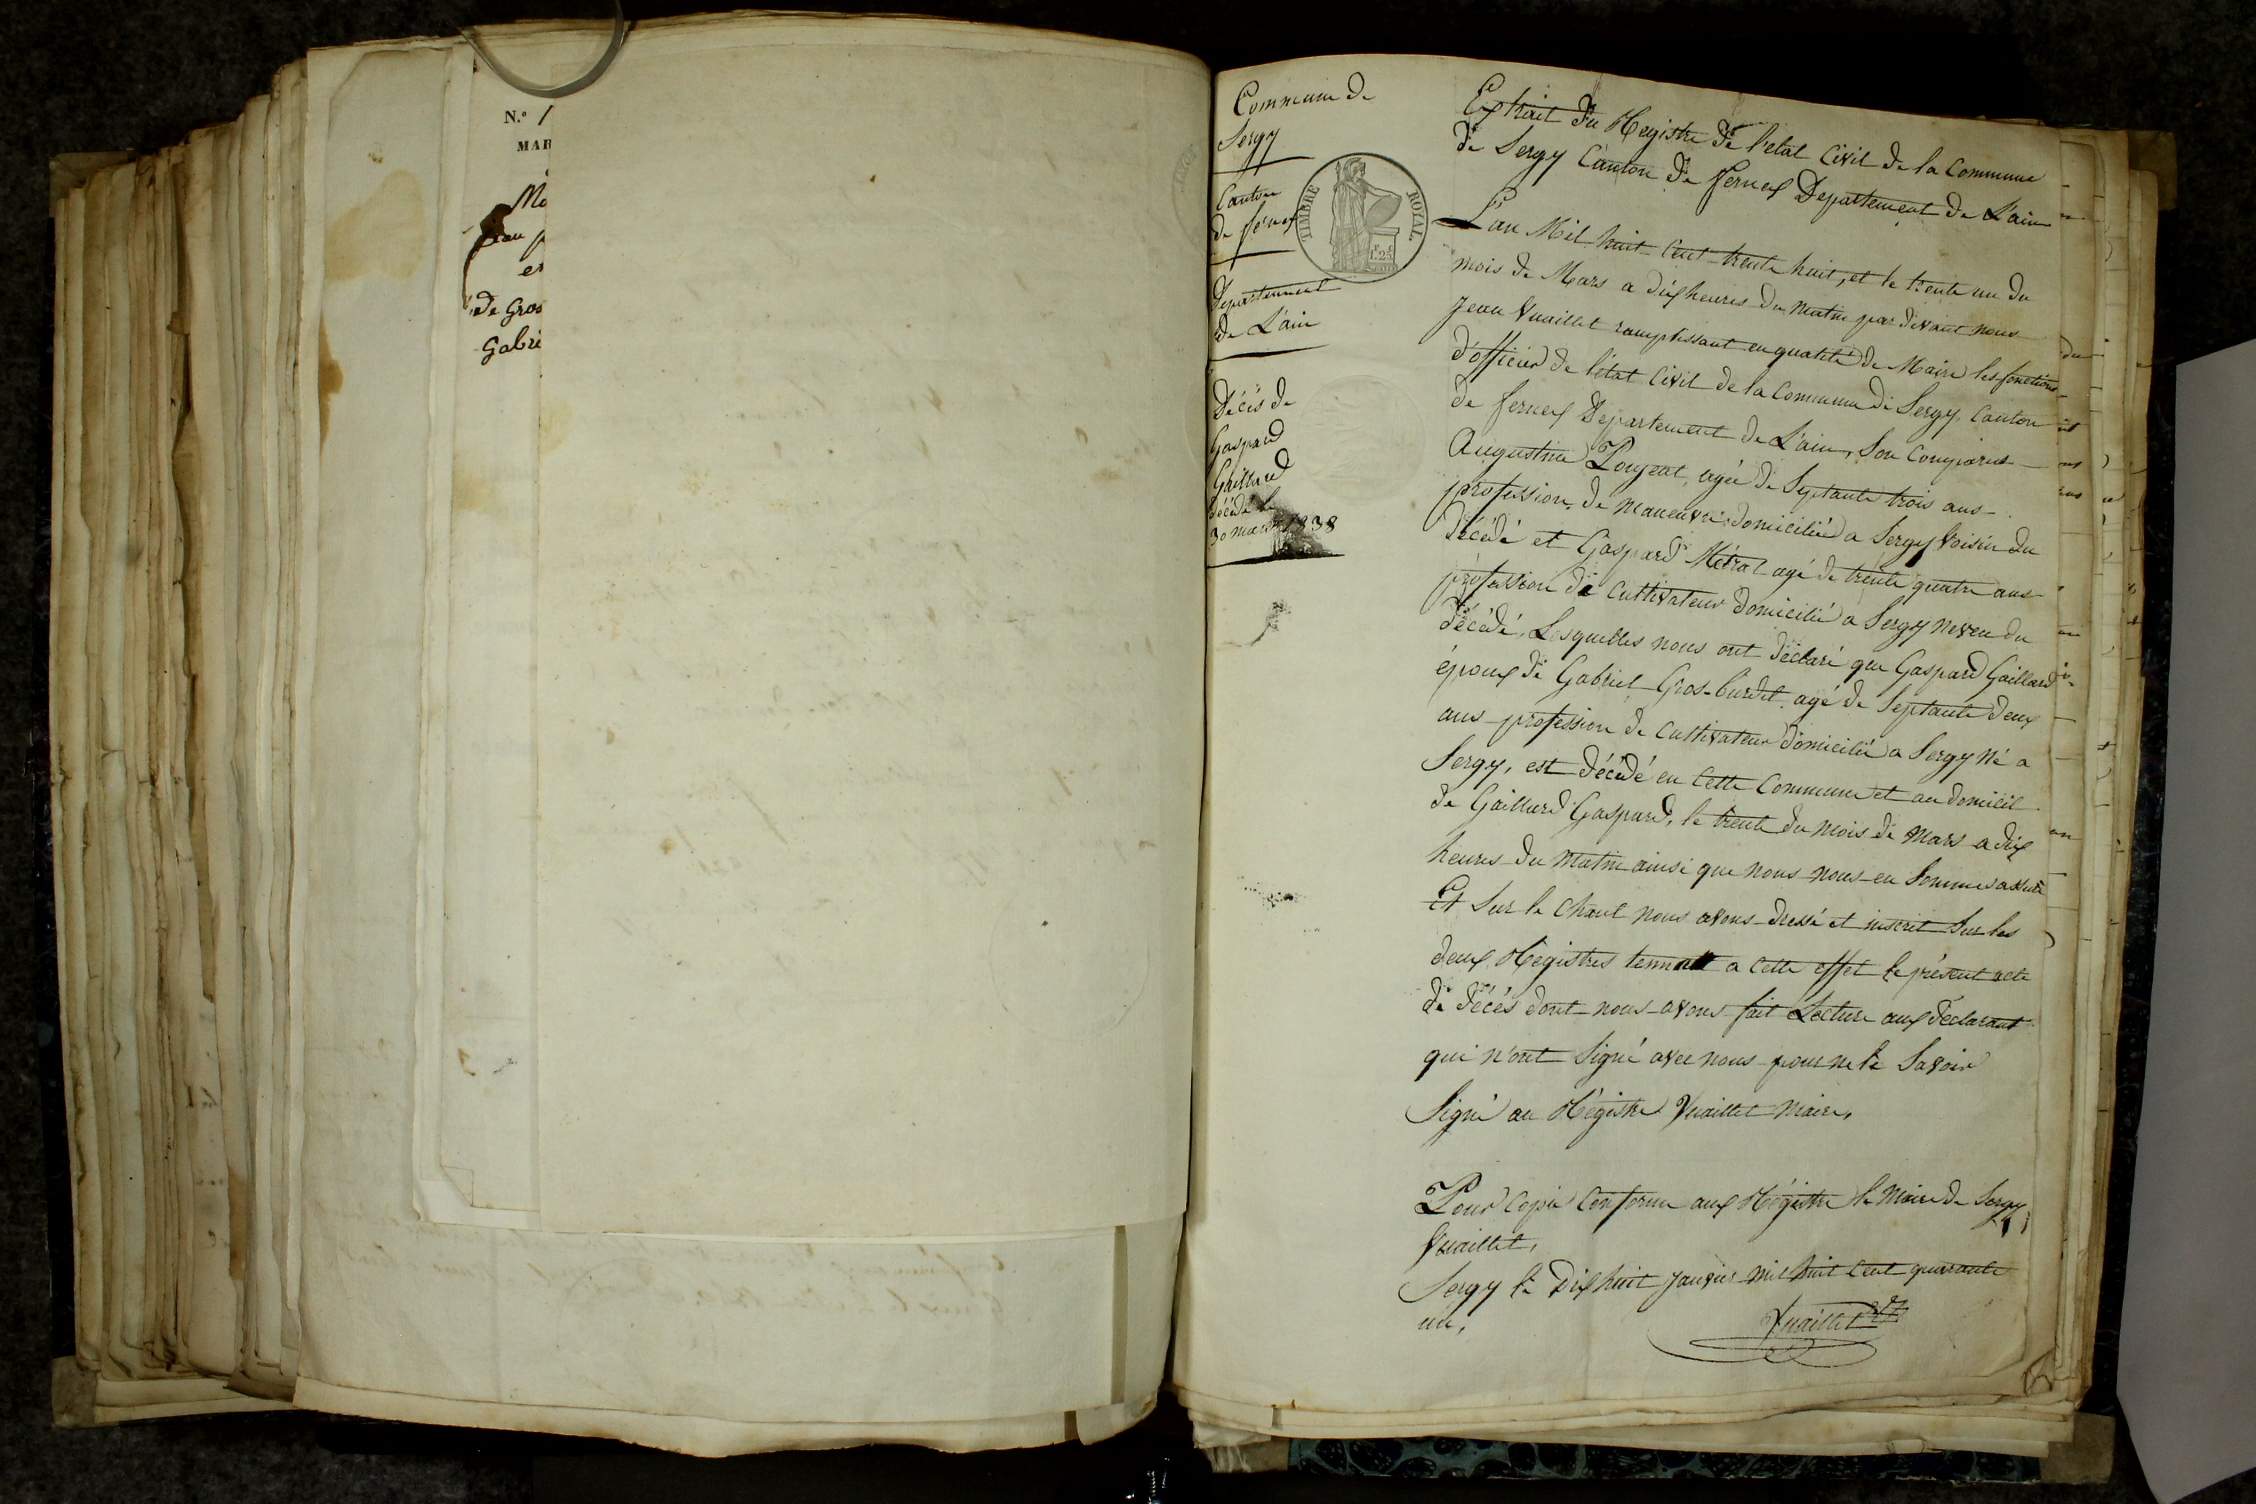 N.º 1
MAR
Ma
jean p
et
de Gros
Gabri
Commune de
Sergy
Canton
de férnex
Département
de L'ain
Décés de
Gaspard
Gaillard
décédé le
30 mars 1838
TIMBRE ROYAL
1f. 25c
Extrait du Registre de l'etat Civil de la Commune
de Sergy Canton de fernex Departement de L'ain
L'an Mil huit Cent trente huit, et le trente un du
mois de Mars a dix heures du Matin par devant nous
Jean Vuaillet ramplissant en qualité de Maire les fonctions
d'officier de l'état Civil de la Commune de Sergy, Canton
de fernex Departement de L'ain, Son Comparus
Augustine Pougeat, agée de Septante trois ans
profession, de maneuvre domiciliée a Sergy Voisin du
décédé et Gaspard Métral agé de trente quatre ans
profession de Cultivateur domicilié a Sergy neveu du
décédé, Lesquelles nous ont déclaré que Gaspard Gaillard
époux de Gabriel Gros-burdet agé de Septante deux
ans profession de Cultivateur domicilié a Sergy Né a
Sergy, est décédé en Cette Commune et au domicil
de Gaillard Gaspard, le trente du mois de Mars a dix
heures du Matin ainsi que nous nous en Sommes assuré
Et Sur le Chant nous avons dressé et inscrit Sur les
deux Régistres tennut a Cette effet le présent acte
de décés dont nous avons fait Lecture aux déclarant
qui n'ont Signé avec nous pour ne le Savoir
Signé au Régistre Vuaillet Maire,
Pour Copie Conforme aux Régistre le Maire de Sergy,
Vuaillet,
Sergy le Dix huit Janvier mil huit Cent quarante
un,
Vuaillet